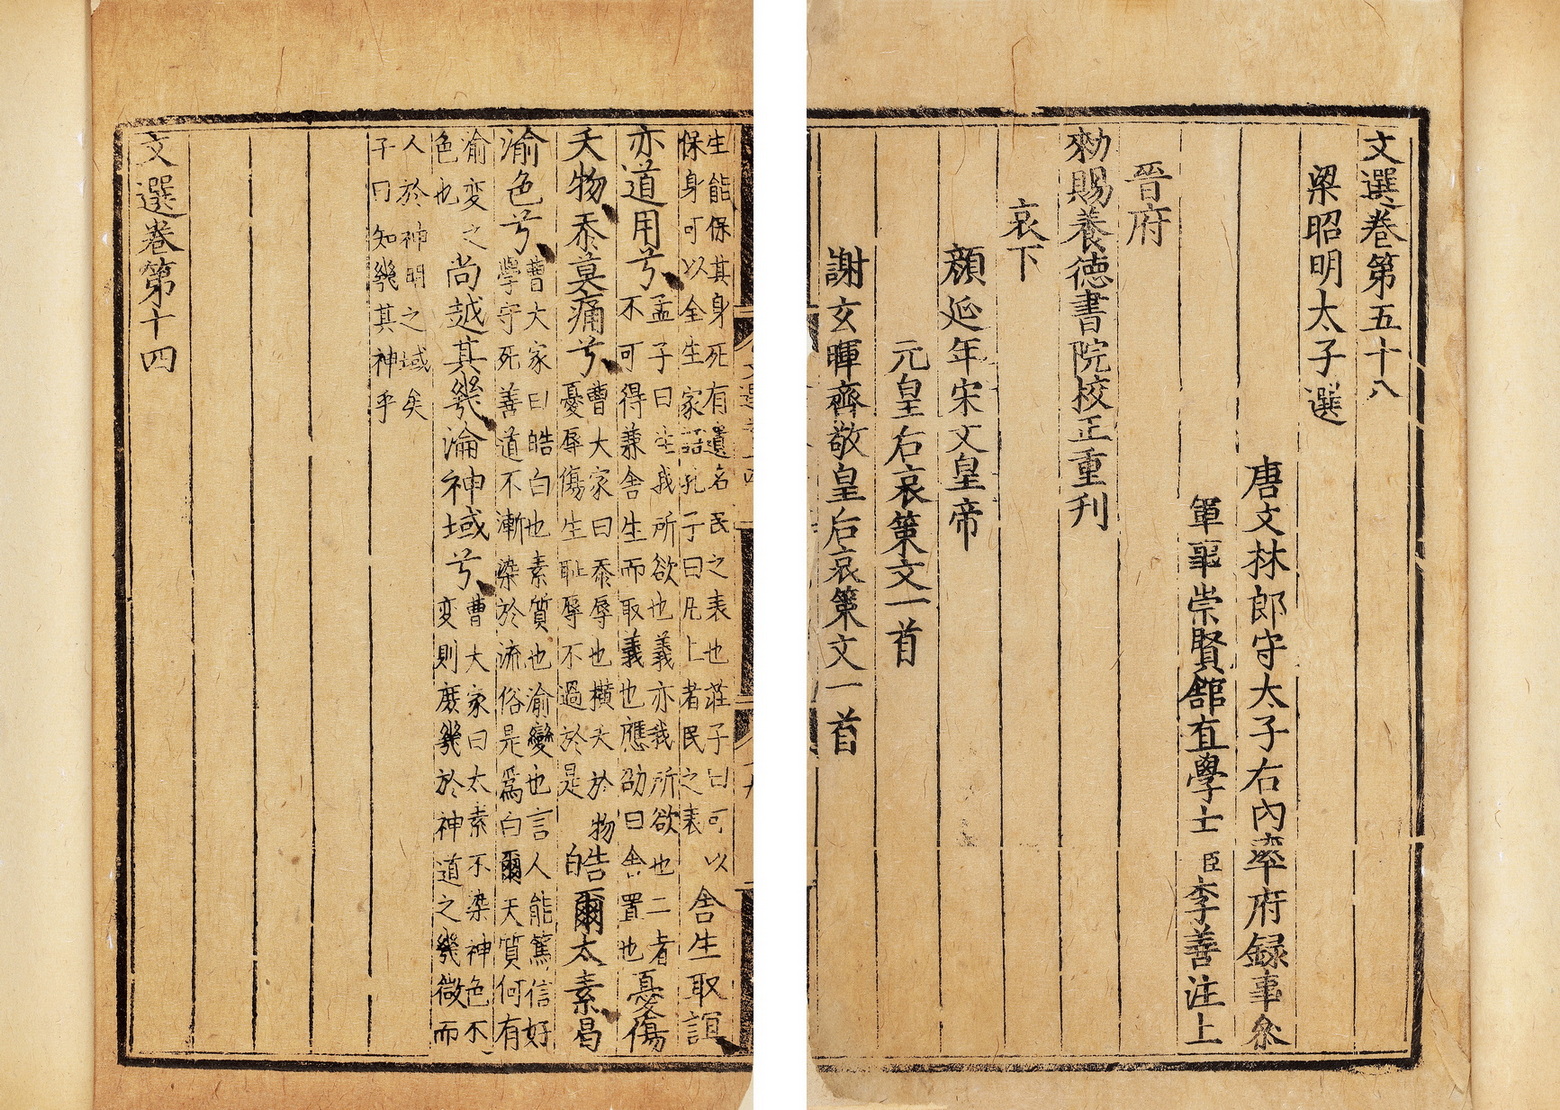 文選卷第五十八
梁昭明太子選
唐文林郎守太子右內率府録事叅
軍事崇賢館直學士臣李善注上
晉府
勑賜養德書院校正重刊
哀下
顏延年宋文皇帝
元皇后哀策文一首
謝玄暉齊敬皇后哀策文一首
生能保其身死有遺名民之表也莊子曰可以
保身可以全生家語孔子曰凡上者民之表
舍生取誼
亦道用兮
孟子曰生我所欲也義亦我所欲也二者
不可得兼舍生而取義也應劭曰舍置也
憂傷
夭物忝莫痛兮
曹大家曰忝辱也橫夭於物
憂辱傷生耻辱不過於是
皓爾太素曷
渝色兮
曹大家曰皓白也素質也渝變也言人能篤信好
學守死善道不漸染於流俗是爲白爾天質何有
渝变之
色也
尚越其㡬淪神域兮
曹大家曰太素不染神色不
变則庶㡬於神道之㡬微而
人於神明之域矣
子曰知㡬其神乎
文選卷第十四